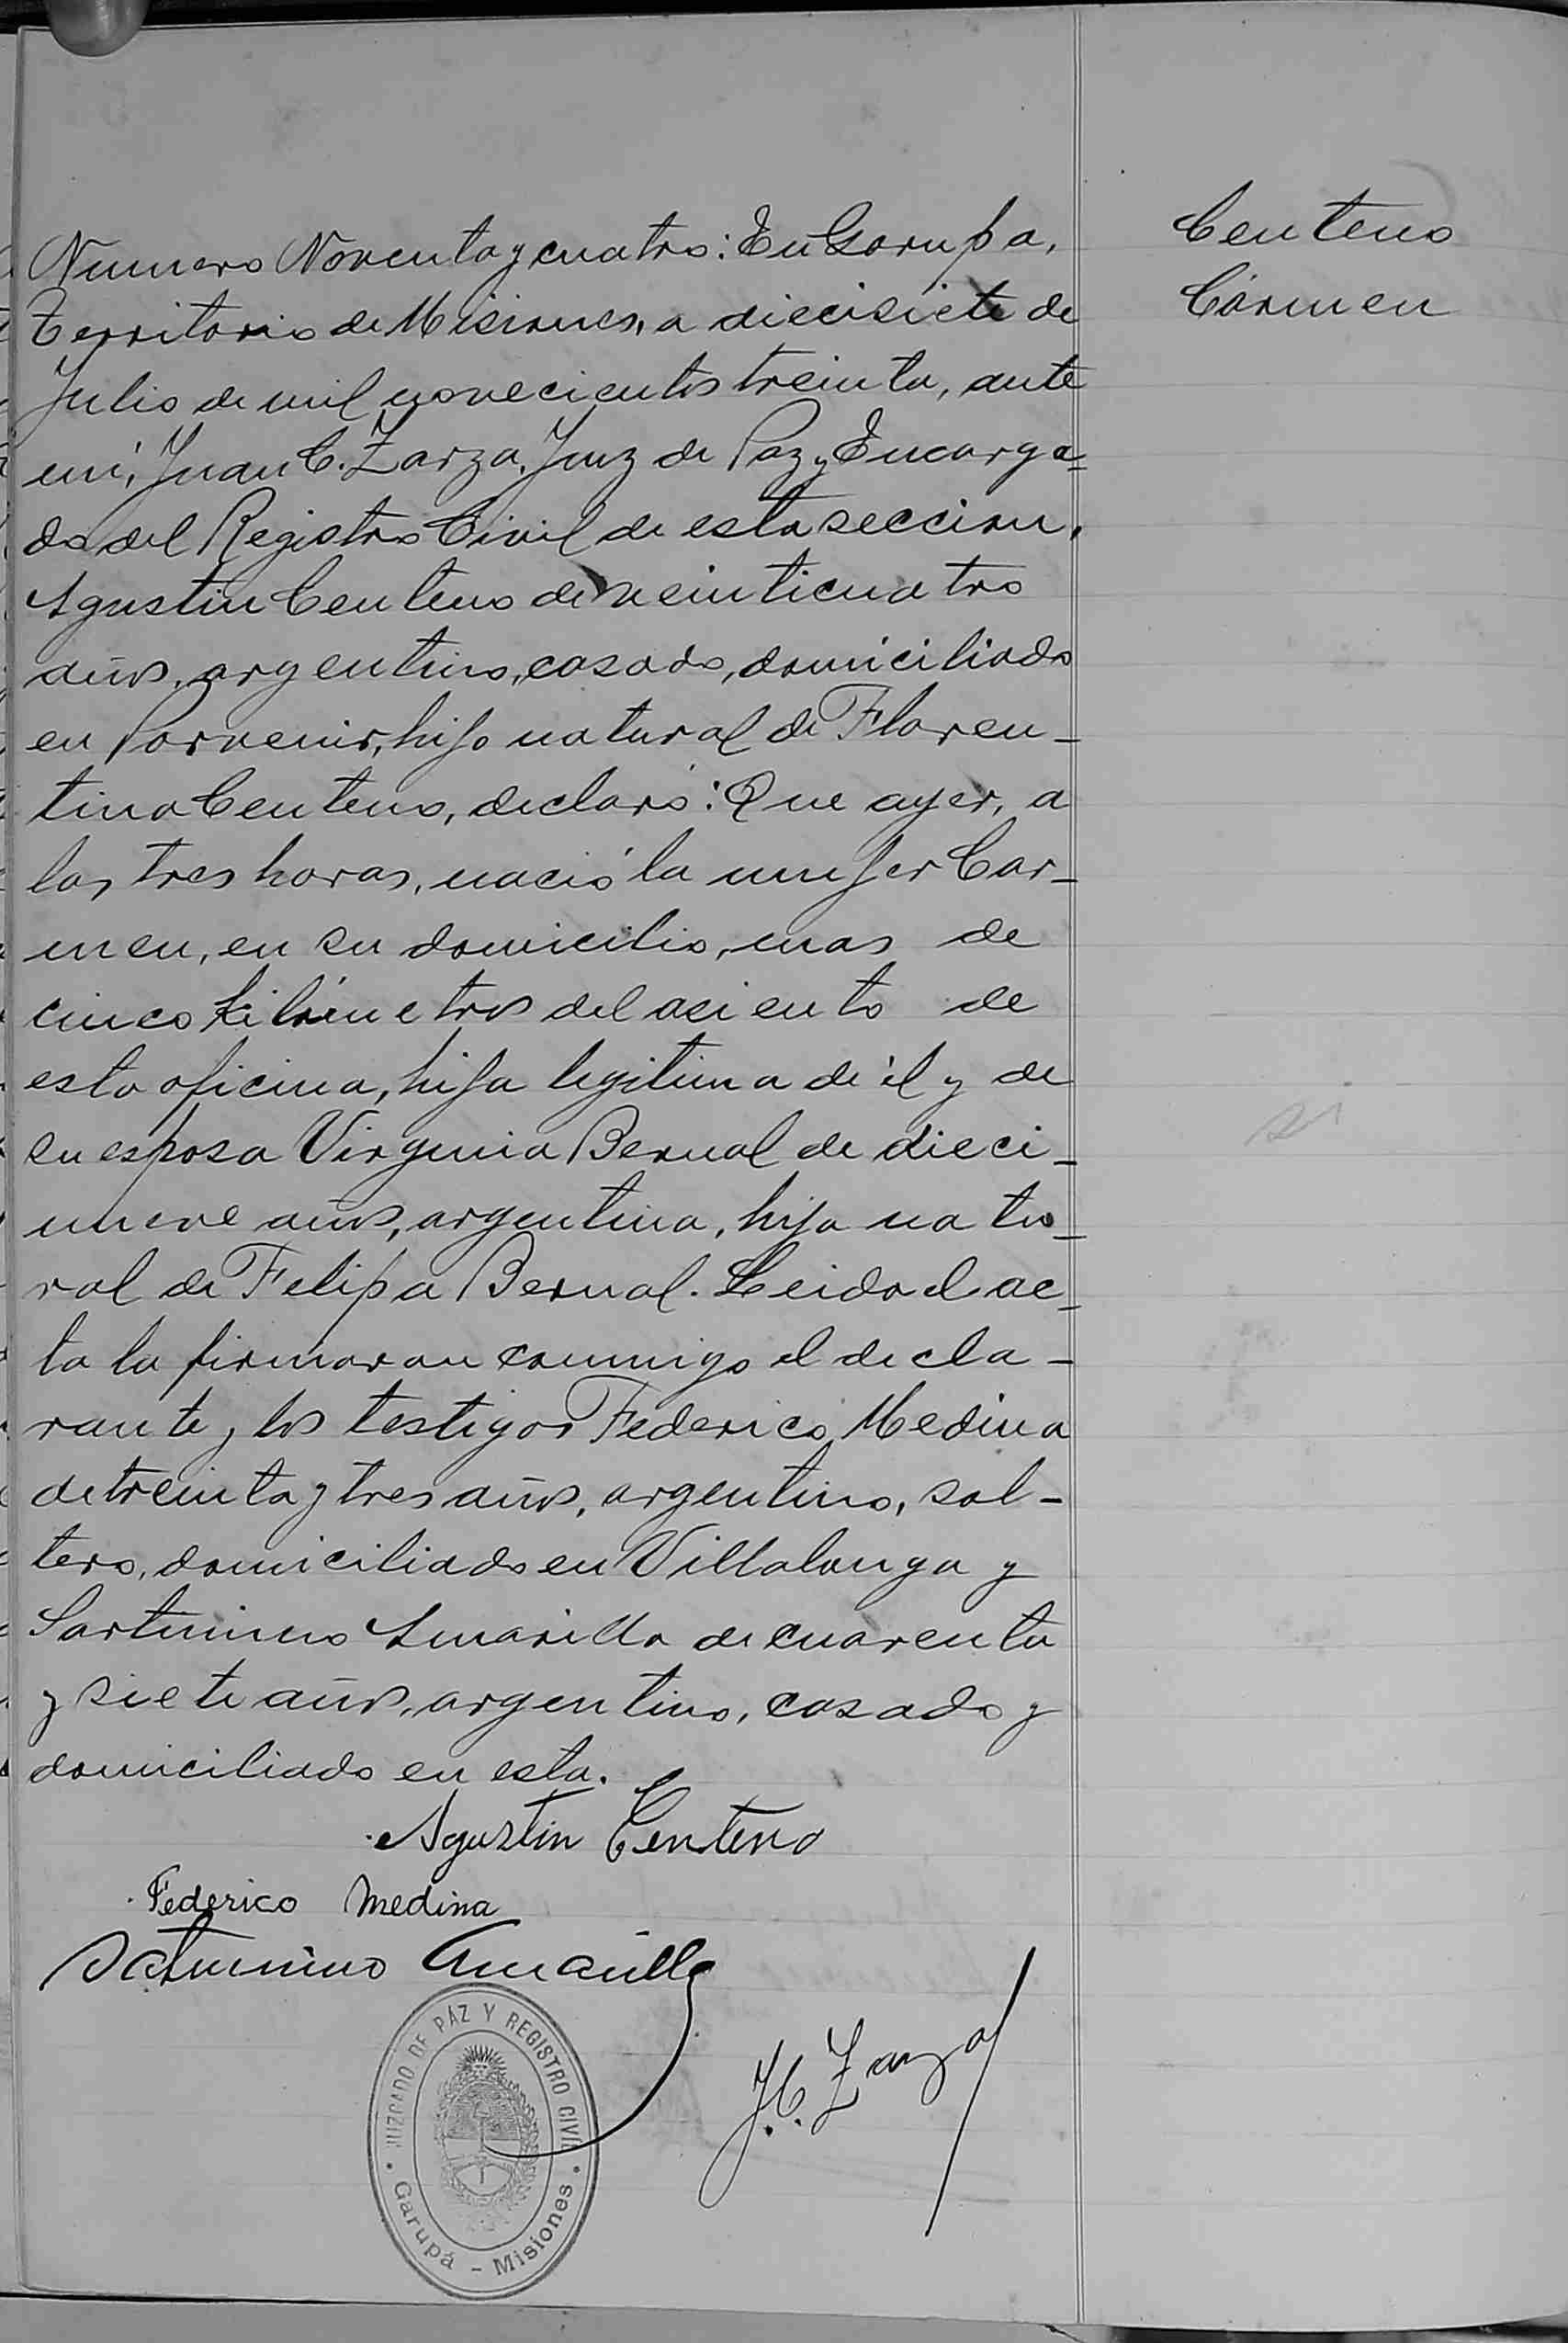 Centeno
Cármen
Numero Noventa y cuatro: En Garupa,
Territorio de Misiones, a diecisiete de
Julio de mil novecientos treinta, ante
mí, Juan C. Zarza, Juez de Paz y Encarga=
do del Registro Civil de esta seccion,
Agustin Centeno de veinticuatro
años, argentino, casado, domiciliado
en Porvenir, hijo natural de Floren-
tina Centeno, declaró: Que ayer, a
las tres horas, nació la mujer Car-
men, en su domicilio, mas de
cinco kilómetros del asiento de
esta oficina, hija legitima de él y de
su esposa Virginia Bernal de dieci-
nueve años, argentina, hija natu-
ral de Felipa Bernal. Leida el ac-
ta la firmaron conmigo el decla-
rante y los testigos Federico Medina
de treinta y tres años, argentino, sol-
tero, domiciliado en Villalonga y
Sarturnino Amarilla de cuarenta
y siete años, argentino, casado y
domiciliado en esta.
Agustin Centeno
Federico Medina
Saturnino Amarilla
J.C. Zarza
JUZGADO DE PAZ Y REGISTRO CIVIL
Garupá - Misiones